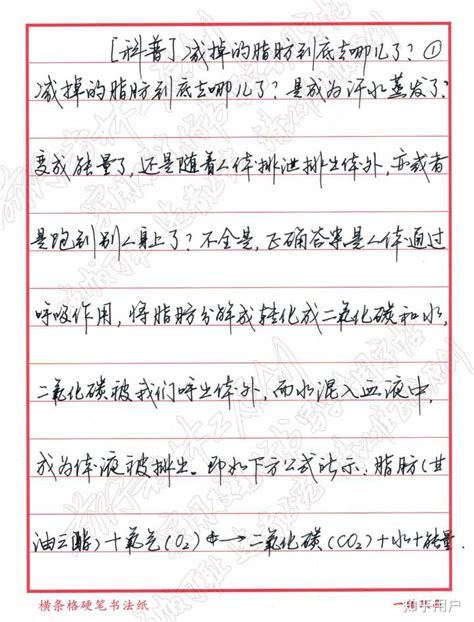 [科普]减掉的脂肪到底去哪儿了?①
减掉的脂肪到底去哪儿了?是成为汗水蒸发了?
变成能量了,还是随着人体排泄排出体外,亦或者
是跑到别人身上了?不全是,正确答案是人体通过
呼吸作用,将脂肪分解成转化成二氧化碳和水,
二氧化碳被我们呼出体外,而水混入血液中,
成为体液被排出。即如下方公式所示:脂肪(甘
油三酯)+氧气(O₂)→二氧化碳(CO₂)+水+能量.
横条格硬笔书法纸
知乎用户